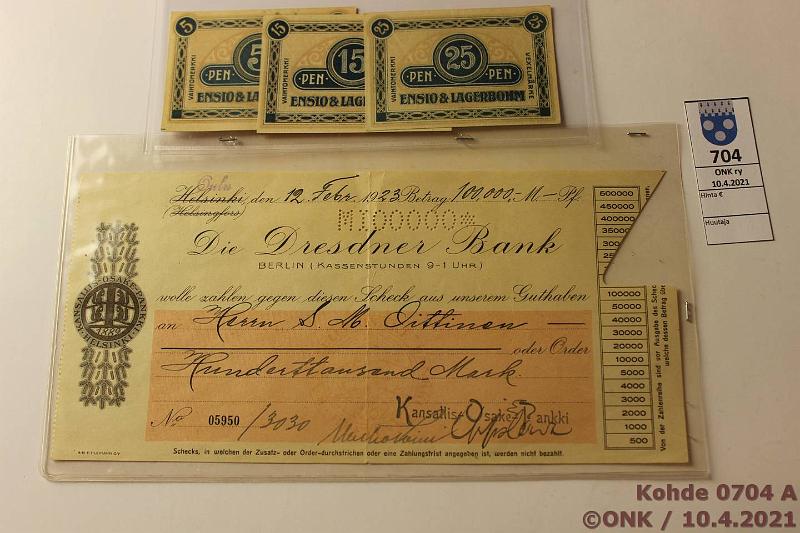 5
VAIHTOMERKKI
5
PEN
ENSIO & LAG
15
VAIHTOMERKKI
15
PEN
ENSIO & LAGE
25
25
VAIHTOMERKKI
PEN 25 PEN
VEXELMÄRKE
ENSIO & LAGERBOHM
704
ONK ry
10.4.2021
Hinta €
Huutaja
Helsinki den 12 Febr. 1923 Betrag 100,000,- M. — Pf.
(Helsingfors)
M100000*
Die Dresdner Bank
BERLIN (KASSENSTUNDEN 9-1 UHR)
wolle zahlen gegen diesen Scheck aus unserem Guthaben
an Herrn S. M. Oittinen —
oder Order
Hunderttausend Mark.
Kansallis-Osake-Pankki
No 05950 /3030
Schecks, in welchen der Zusatz- oder Order-durchstrichen oder eine Zahlungsfrist angegeben ist, werden nicht bezahlt.
KANSALLIS-OSAKE-PANKKI
HELSINKI
1889
500000
450000
400000
350000
300
250
100000
50000
40000
30000
20000
10000
5000
4000
3000
2000
1000
500
Von der Zahlenreihe sind vor Ausgabe des Schec
welche dessen Betrag üb
Kohde 0704 A
©ONK / 10.4.2021